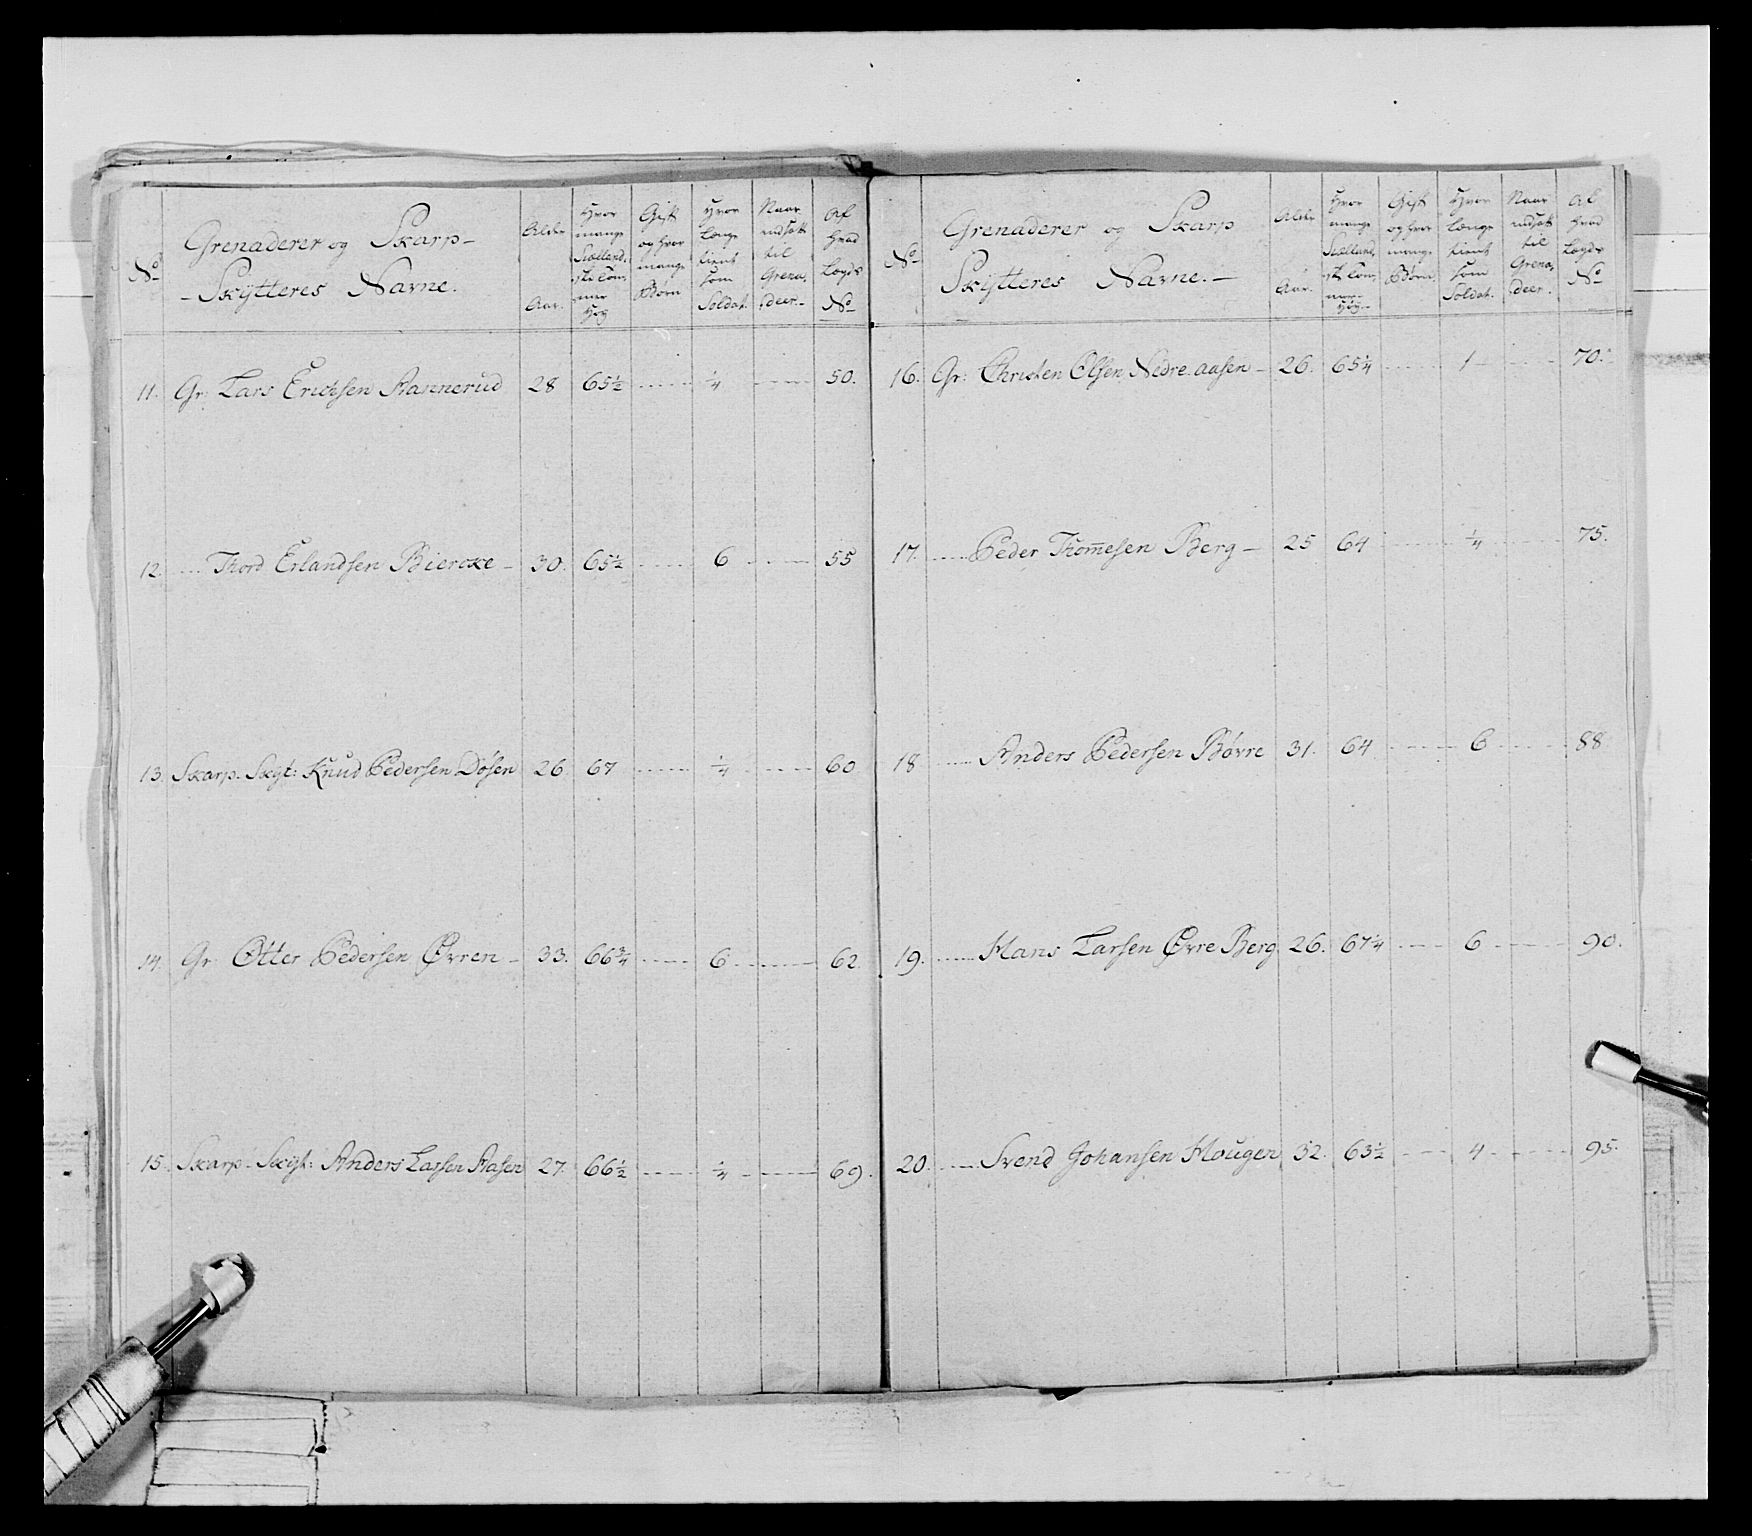 No
Grenaderer og Skarp-
-Skÿtteres Navne.
Alder
Aar.
Hvor
mange
Siælland,
ske Tom,
mer
Høy
Gift
og hvor
mange
Børn
Hvor
længe
tient
som
Soldat.
Naar
udsatt
til
Grena,
deer.-
Af
hvad
Lægds
No
11. Gr: Lars Erichsen Rannerud 28 65½ 1/4 50.
12. Thord Erlandsen Biercke - 30. 65½ 6 55
13. Skarp. Skÿt: Knud Pedersen Døsen 26 67 1/4 60
14. Gr Otter Pedersen Øvren - 33. 66¾ 6 62.
15. Skarp. Skÿt: Anders Larsen Aasen 27. 66½ 1/4 69.
No
Grenaderer og Skarp
Skÿtteres Navne.-
Alder
Aar.
Hvor
mange
Siælland,
ske Tom,
mer
Høy
Gift
og hvor
mange
Børn.
Hvor
længe
tient
som
Soldat.
Naar
udsatt
til
Grena,
deer.
Af
hvad
Lægds
No
16. Gr: Christen Olsen Nedre Aasen - 26. 65¼ 1 70.
17. Peder Thom̅esen Berg - 25 64 1/4 75.
18 Anders Pedersen Bøvre 31. 64 6 88
19. Hans Larsen Øvre Berg 26. 67¼ 6 90.
20. Svend Johansen Hougen 32. 63½ 4 95.